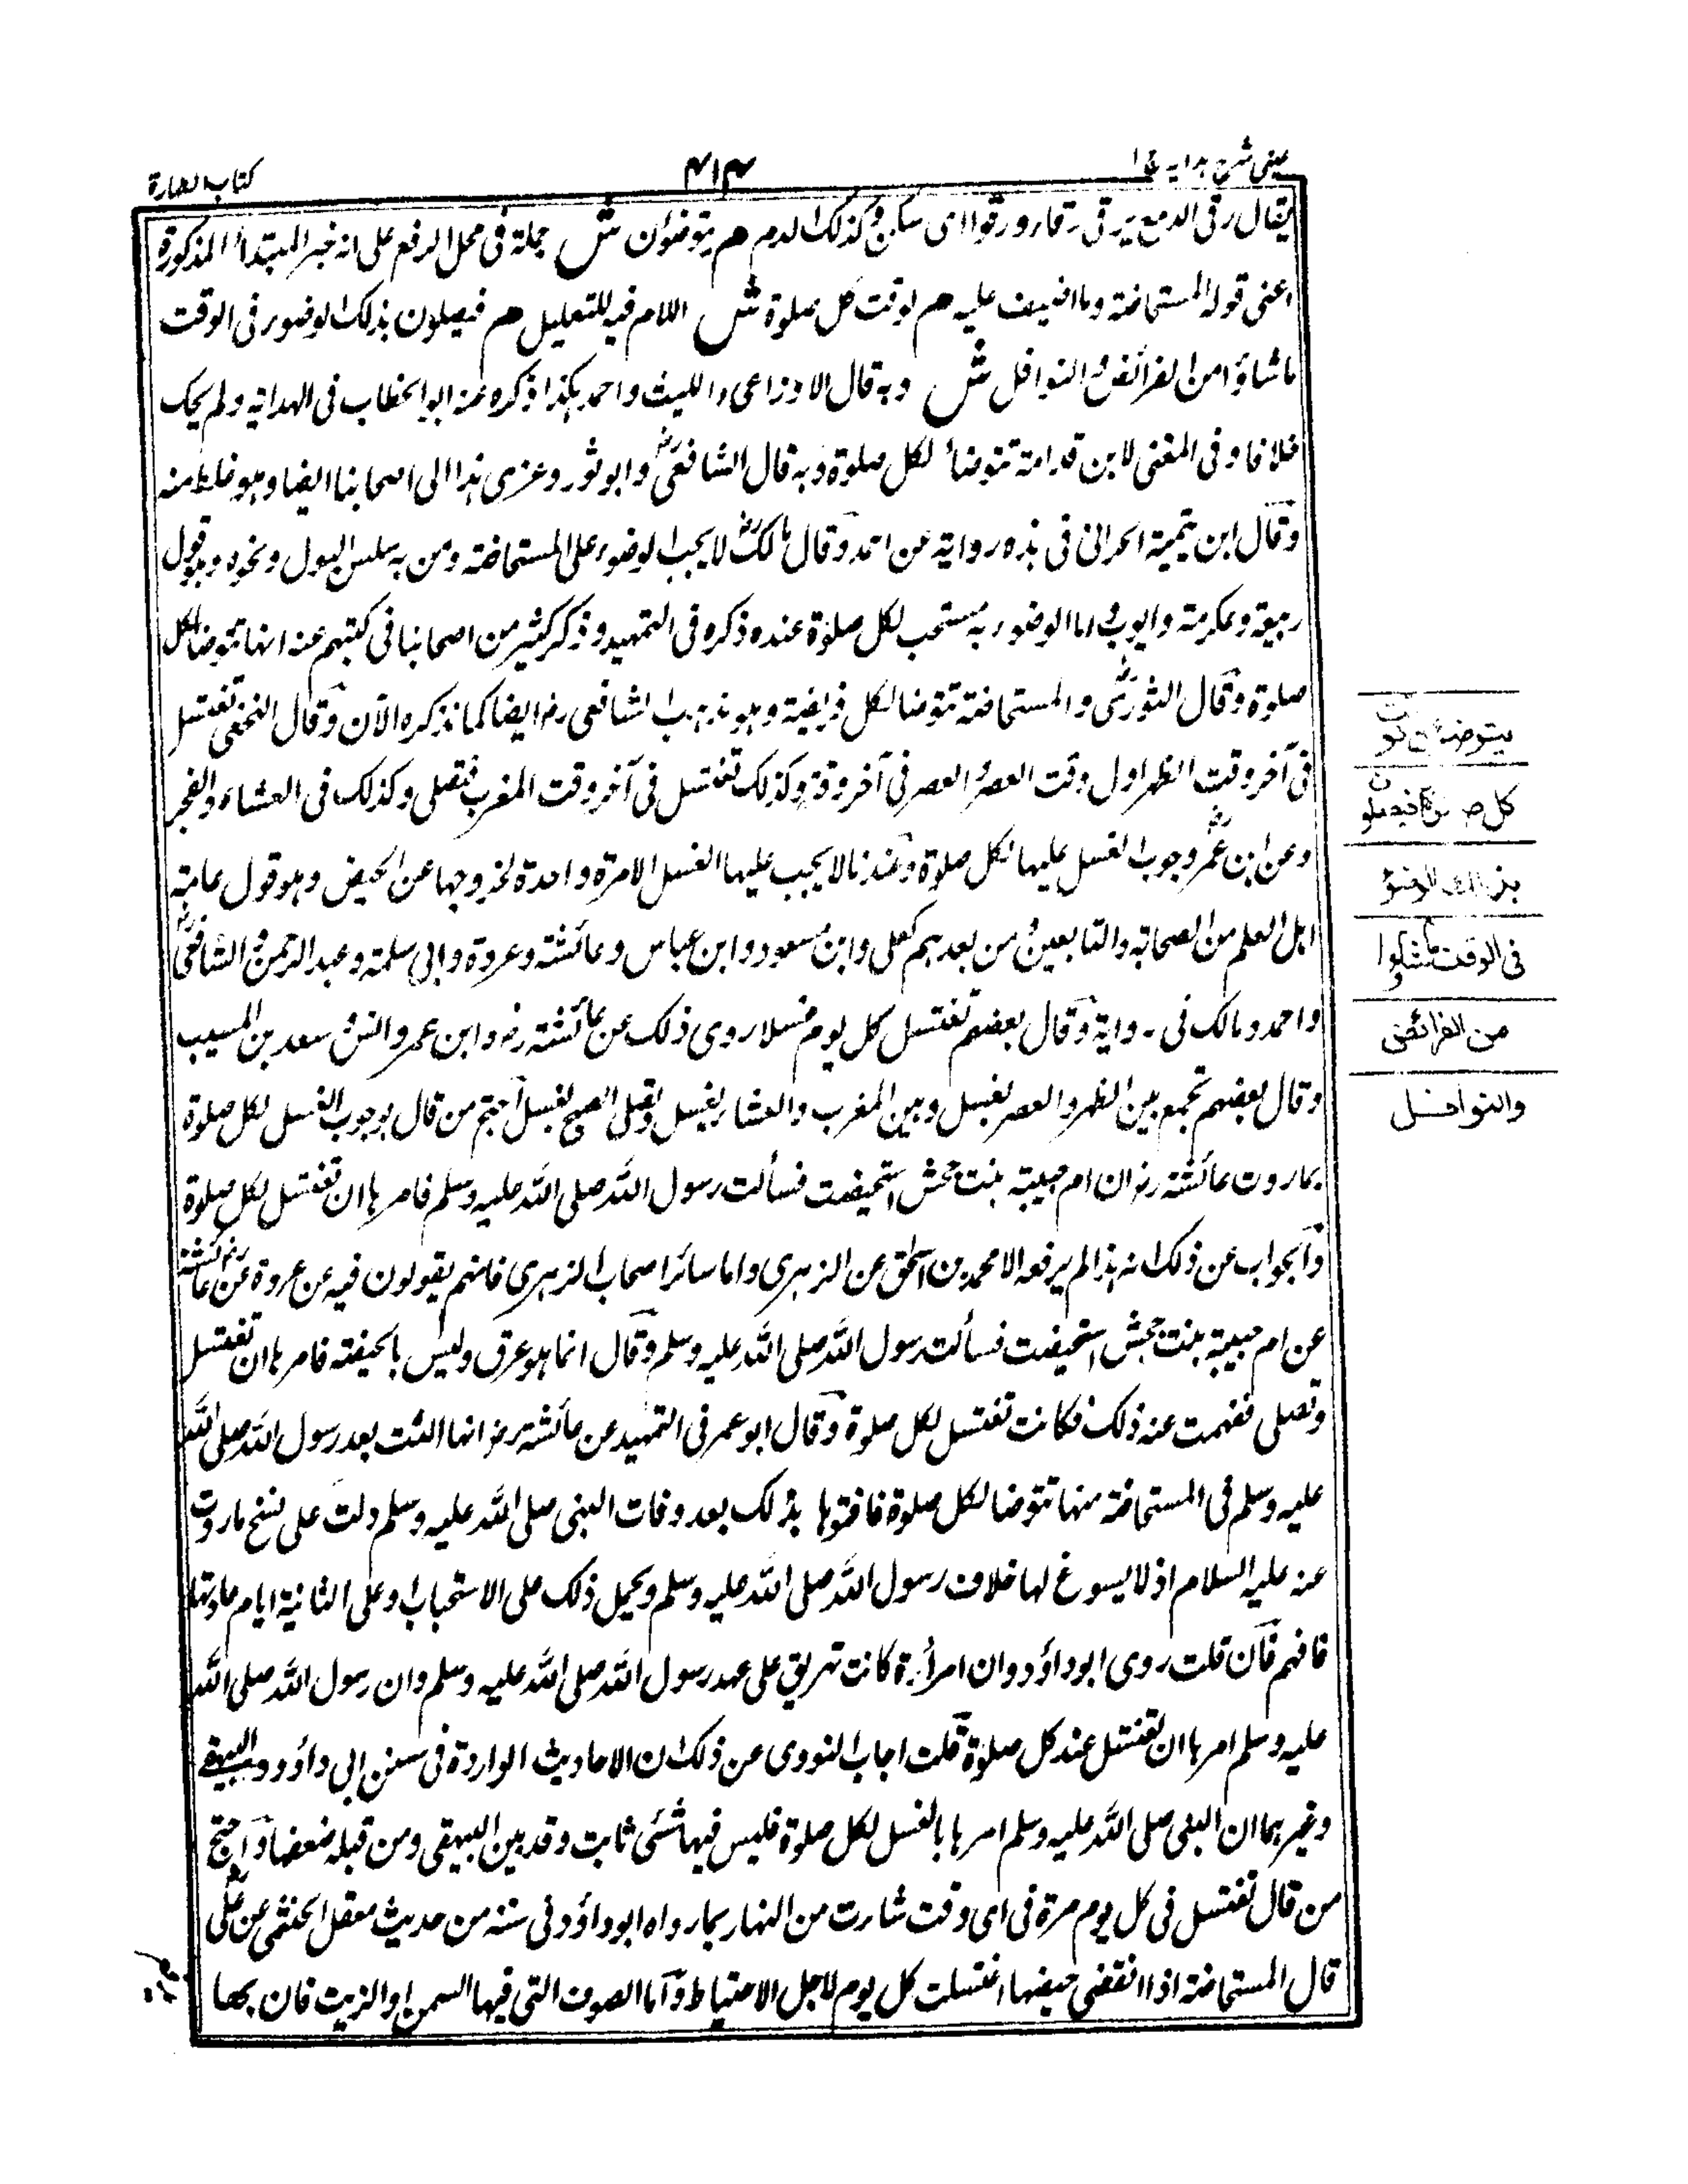 عینی شرح ہدایہ ج ١
٤١٣
کتاب الطهارة
یقال رقی الدمع یرقی رقاء ورقوا ای سکن وکذلک الدم م یتوضؤن ش جملة فی محل الرفع علی انه خبر المبتدأ المذکورة
اعنی قوله المستحاضة وما اضیف علیه م لوقت کل صلوة ش اللام فیه للتعلیل م فیصلون بذلک الوضوء فی الوقت
ماشاؤا من الفرائض والنوافل ش وبه قال الاوزاعی واللیث واحمد ہکذا ذکره عنه ابو الخطاب فی الہدایة ولم یحک
خلافا وفی المغنی لابن قدامة تتوضأ لکل صلوة وبه قال الشافعی وابو ثور وعزی ہذا الی اصحابنا ایضا وہو غلط منه
وقال ابن تیمیة الحرانی فی ہذه روایة عن احمد وقال مالک لا یجب الوضوء علی المستحاضة ومن به سلس البول ونحوه وہو قول
ربیعة وعکرمة وایوب واما الوضوء به مستحب لکل صلوة عنده ذکره فی التمہید وذکر کثیر من اصحابنا فی کتبہم عنه انہا تتوضأ لکل
صلوة وقال الثوری والمستحاضة تتوضأ لکل فریضة وہو مذہب الشافعی رض ایضا کما نذکره الآن وقال النخعی تغتسل
فی آخر وقت الظہر اول وقت العصر العصر فی آخر وقته وکذلک تغتسل فی آخر وقت المغرب فتصلی وکذلک فی العشاء والفجر
وعن ابن عمر وجوب الغسل علیہا لکل صلوة وعندنا لا یجب علیہا الغسل الامرة واحدة لخروجہا عن الحیض وہو قول عامة
اہل العلم من الصحابة والتابعین ومن بعدہم کعلی وابن مسعود وابن عباس وعائشة وعروة وابی سلمة وعبد الرحمن والشافعی
واحمد ومالک فی روایة وقال بعضہم تغتسل کل یوم غسلا روی ذلک عن عائشة رض وابن عمر وانس وسعد بن المسیب
وقال بعضہم تجمع بین الظہر والعصر بغسل وبین المغرب والعشاء بغسل وتصلی الصبح بغسل احتج من قال بوجوب الغسل لکل صلوة
بما روت عائشة رض ان ام حبیبة بنت جحش استحیضت فسألت رسول الله صلی الله علیه وسلم فامرہا ان تغتسل لکل صلوة
والجواب عن ذلک انه ہذا لم یرفعه الا محمد بن اسحق عن الزہری واما سائر اصحاب الزہری فانہم یقولون فیه عن عروة عن عائشة رض
عن ام حبیبة بنت جحش استحیضت فسألت رسول الله صلی الله علیه وسلم وقال انما ہو عرق ولیس بالحیضة فامرہا ان تغتسل
وتصلی ففہمت عنه ذلک فکانت تغتسل لکل صلوة وقال ابو عمر فی التمہید عن عائشة رض انہا افتت بعد رسول الله صلی الله
علیه وسلم فی المستحاضة منہا تتوضأ لکل صلوة فافتوہا بذلک بعد وفات النبی صلی الله علیه وسلم دلت علی نسخ ماروت
عنه علیه السلام اذ لا یسوغ لہا خلاف رسول الله صلی الله علیه وسلم ویحمل ذلک علی الاستحباب او علی الثانیة ایام عادتہا
فافہم فان قلت روی ابو داؤد وان امرأة کانت تہریق علی عہد رسول الله صلی الله علیه وسلم وان رسول الله صلی الله
علیه وسلم امرہا ان تغتسل عند کل صلوة قلت اجاب النووی عن ذلک ان الاحادیث الواردة فی سنن ابی داؤد والبیہقی
وغیرہما ان النبی صلی الله علیه وسلم امرہا بالغسل لکل صلوة فلیس فیہا شئی ثابت وقد بین البیہقی ومن قبله ضعفہا واحتج
من قال تغتسل فی کل یوم مرة فی ای وقت شاءت من النہار بما رواه ابو داؤد فی سننه من حدیث معقل الخثعمی عن علی
قال المستحاضة اذا انقضی حیضہا اغتسلت کل یوم لاجل الاحتیاط واما الصوف التی فیہا السمن او الزیت فان بہا
یتوضئن لو
کل صلوة فیصلون
بذلک الوضوء
فی الوقت ماشاؤا
من الفرائض
والنوافل